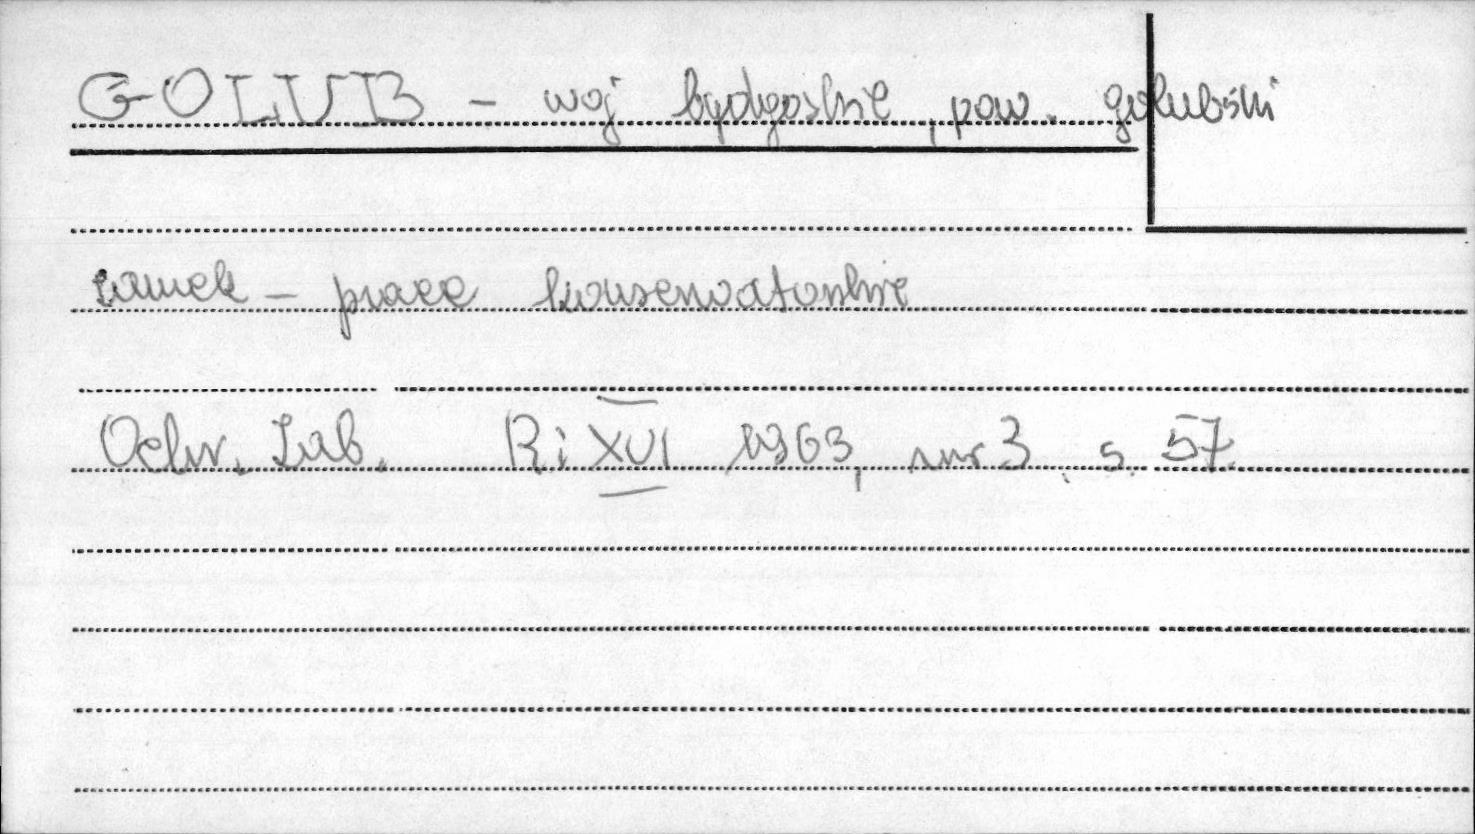 GOLUB - woj bydgoskie, pow. golubski
zamek - prace konserwatorskie
Ochr. Zab. R: XVI 1963, nr 3, s. 57.